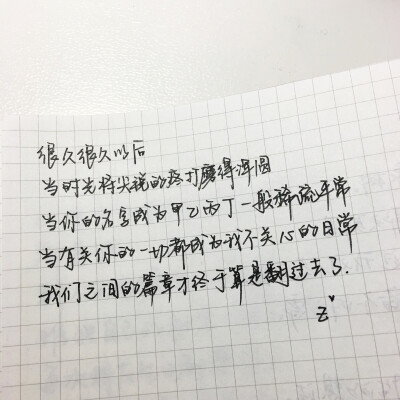 很久很久以后
当时光将尖锐的疼打磨得浑圆
当你的名字成为甲乙丙丁一般稀疏平常
当有关你的一切都成为我不关心的日常
我们之间的篇章才终于算是翻过去了.
z